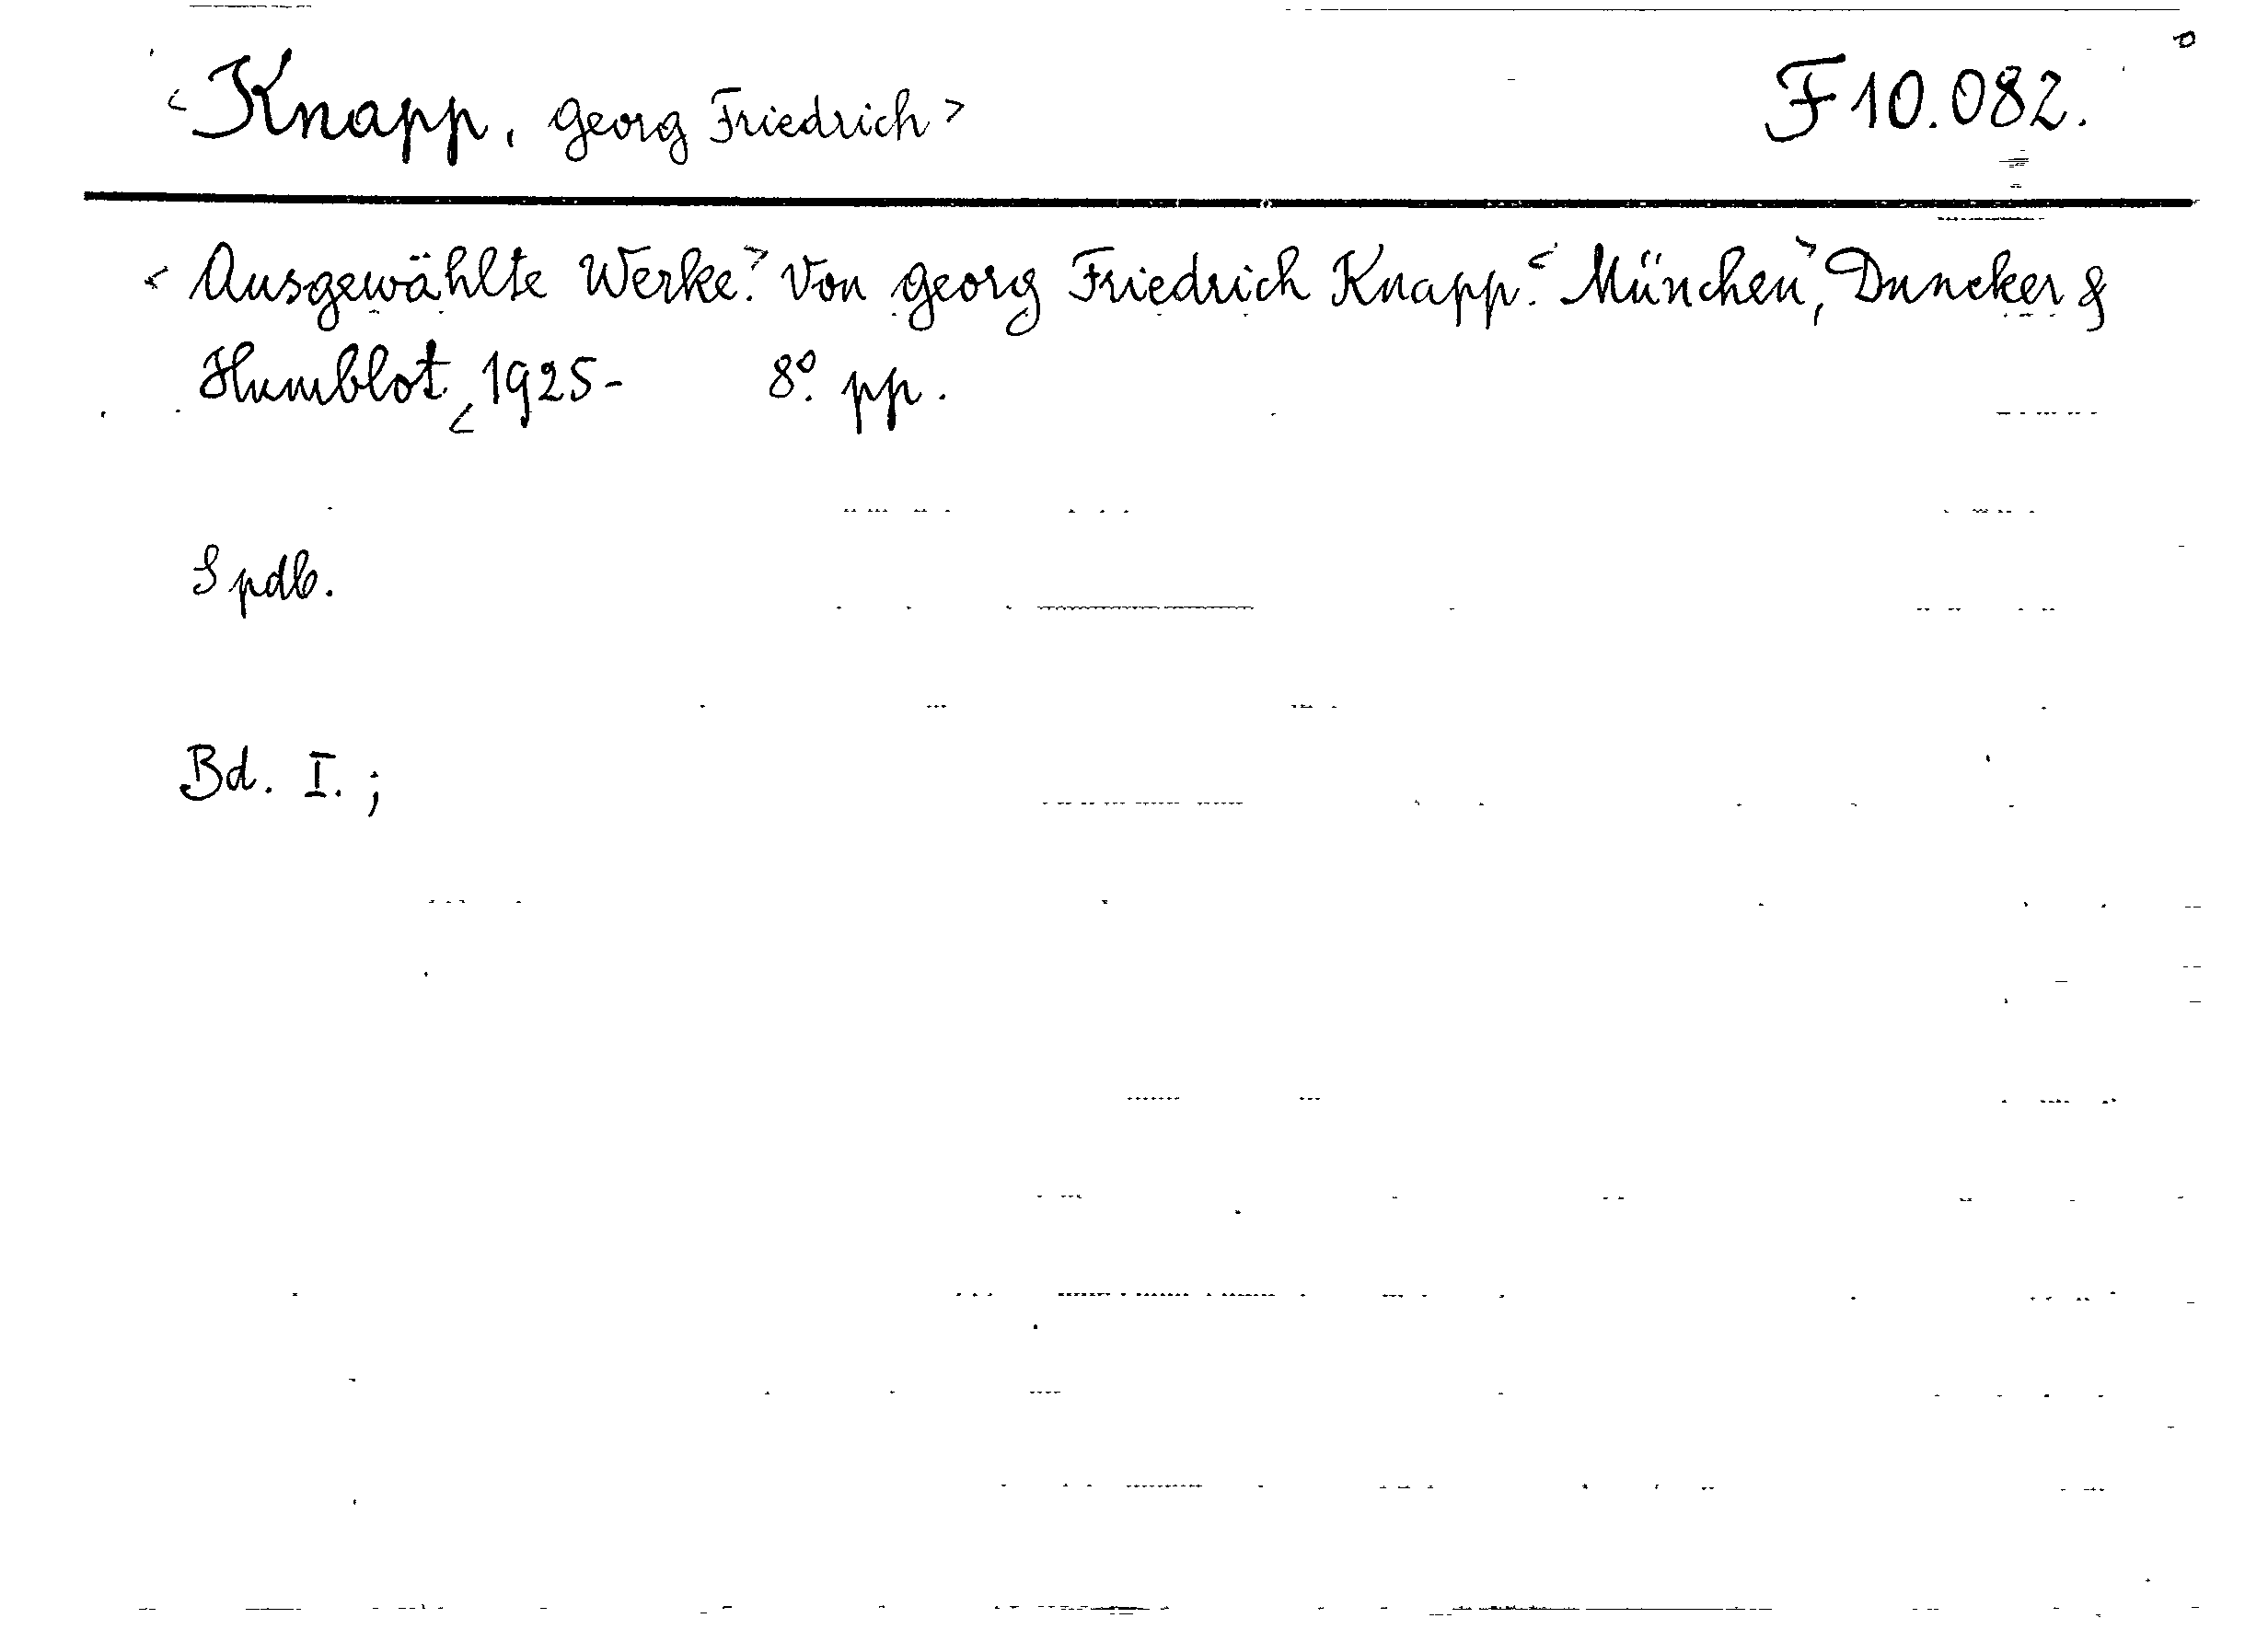 <Knapp, Georg Friedrich> F 10.082.
<Ausgewählte Werke.> Von Georg Friedrich Knapp. <München>, Duncker &
Humblot, <1925- 8º. pp.
Spdb.
Bd. I.;